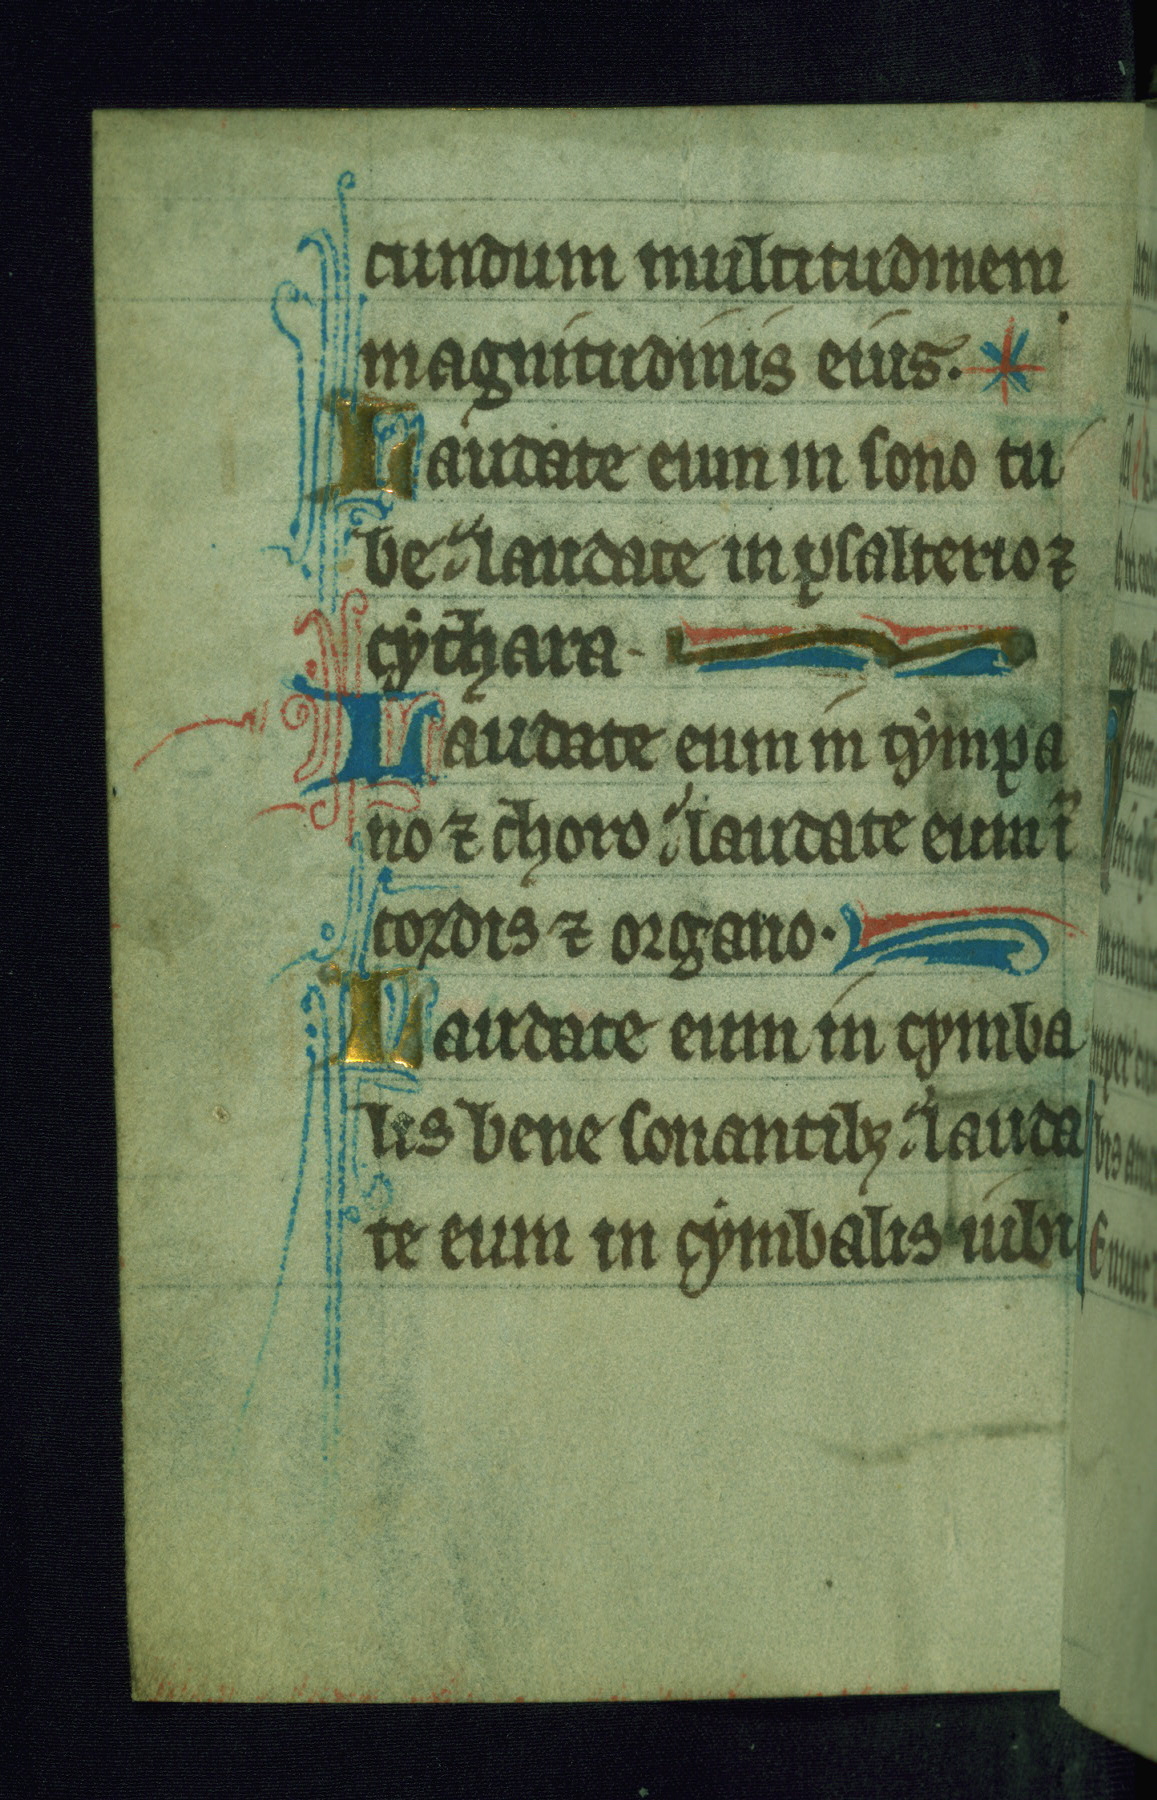 cundum multitudinem
magnitudinis eius.
Laudate eum in sono tu
be: laudate in psalterio ⁊
cythara.
Laudate eum in tympa
no ⁊ choro: laudate eum ī
cordis ⁊ organo.
Laudate eum in cymba
lis bene sonantibꝫ: lauda
te eum in cymbalis iubi